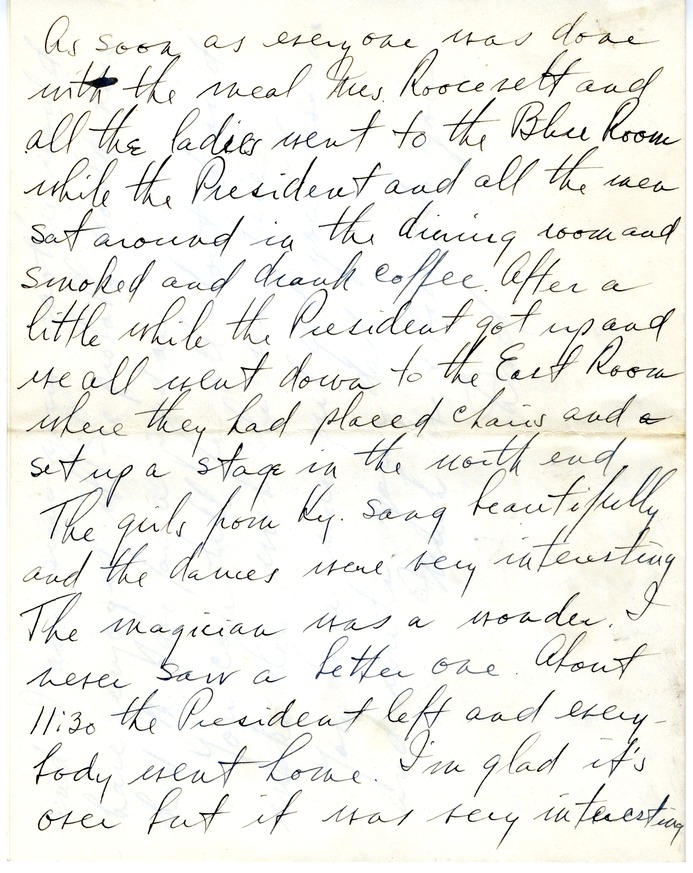 As soon as everyone was done
with the meal Mrs. Roosevelt and
all the ladies went to the Blue Room
while the President and all the men
sat around in the dining room and
smoked and drank coffee. After a
little while the President got up and
we all went down to the East Room
where they had placed chairs and a
set up a stage in the north end
The girls from Ky. sang beautifully
and the dances were very interesting
The magician was a wonder. I
never saw a better one. About
11:30 the President left and every-
body went home. I'm glad it's
over but it was very interesting